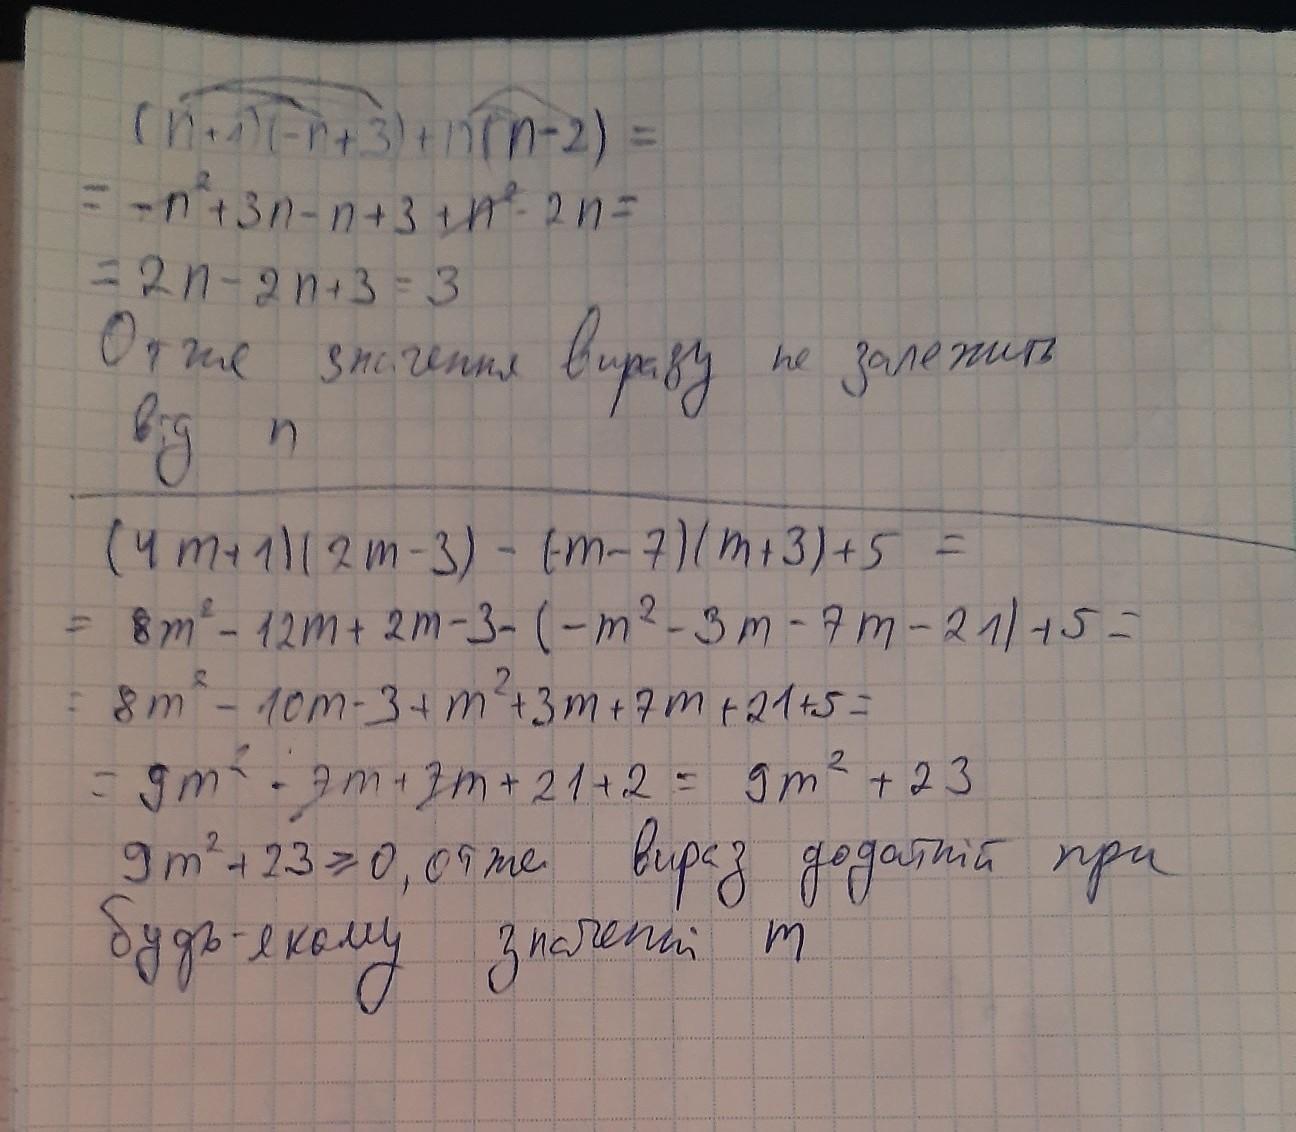 (n+1)(-n+3)+n(n-2)=
= -n²+3n-n+3+n²-2n=
= 2n-2n+3=3
Отже значення виразу не залежить
від n
(4m+1)(2m-3)-(-m-7)(m+3)+5 =
= 8m²-12m+2m-3-(-m²-3m-7m-21)+5=
= 8m²-10m-3+m²+3m+7m+21+5=
= 9m²-7m+7m+21+2= 9m²+23
9m²+23≥0, отже вираз додатній при
будь-якому значенні m